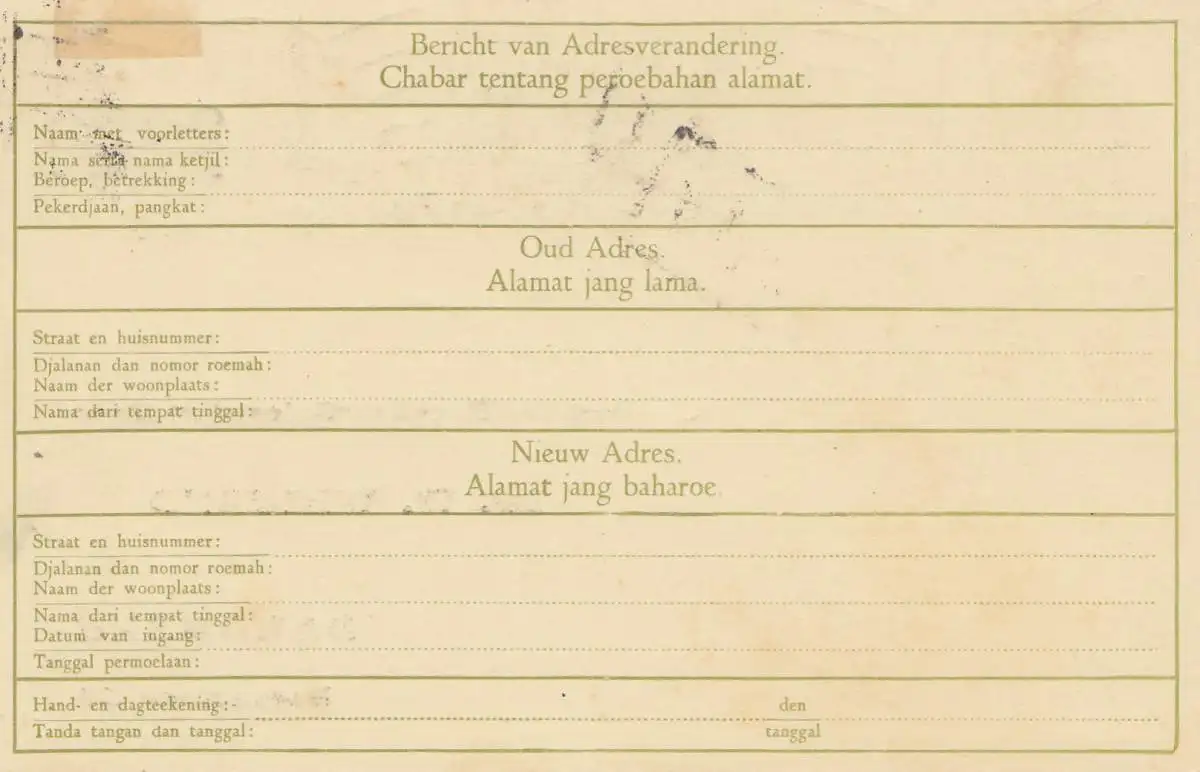 Bericht van Adresverandering.
Chabar tentang peroebahan alamat.
Naam met voorletters:
Nama serta nama ketjil:
Beroep, betrekking:
Pekerdjaan, pangkat:
Oud Adres.
Alamat jang lama.
Straat en huisnummer:
Djalanan dan nomor roemah:
Naam der woonplaats:
Nama dari tempat tinggal:
Nieuw Adres.
Alamat jang baharoe
Straat en huisnummer:
Djalanan dan nomor roemah:
Naam der woonplaats:
Nama dari tempat tinggal:
Datum van ingang:
Tanggal permoelaan:
Hand- en dagteekening:- den
Tanda tangan dan tanggal: tanggal